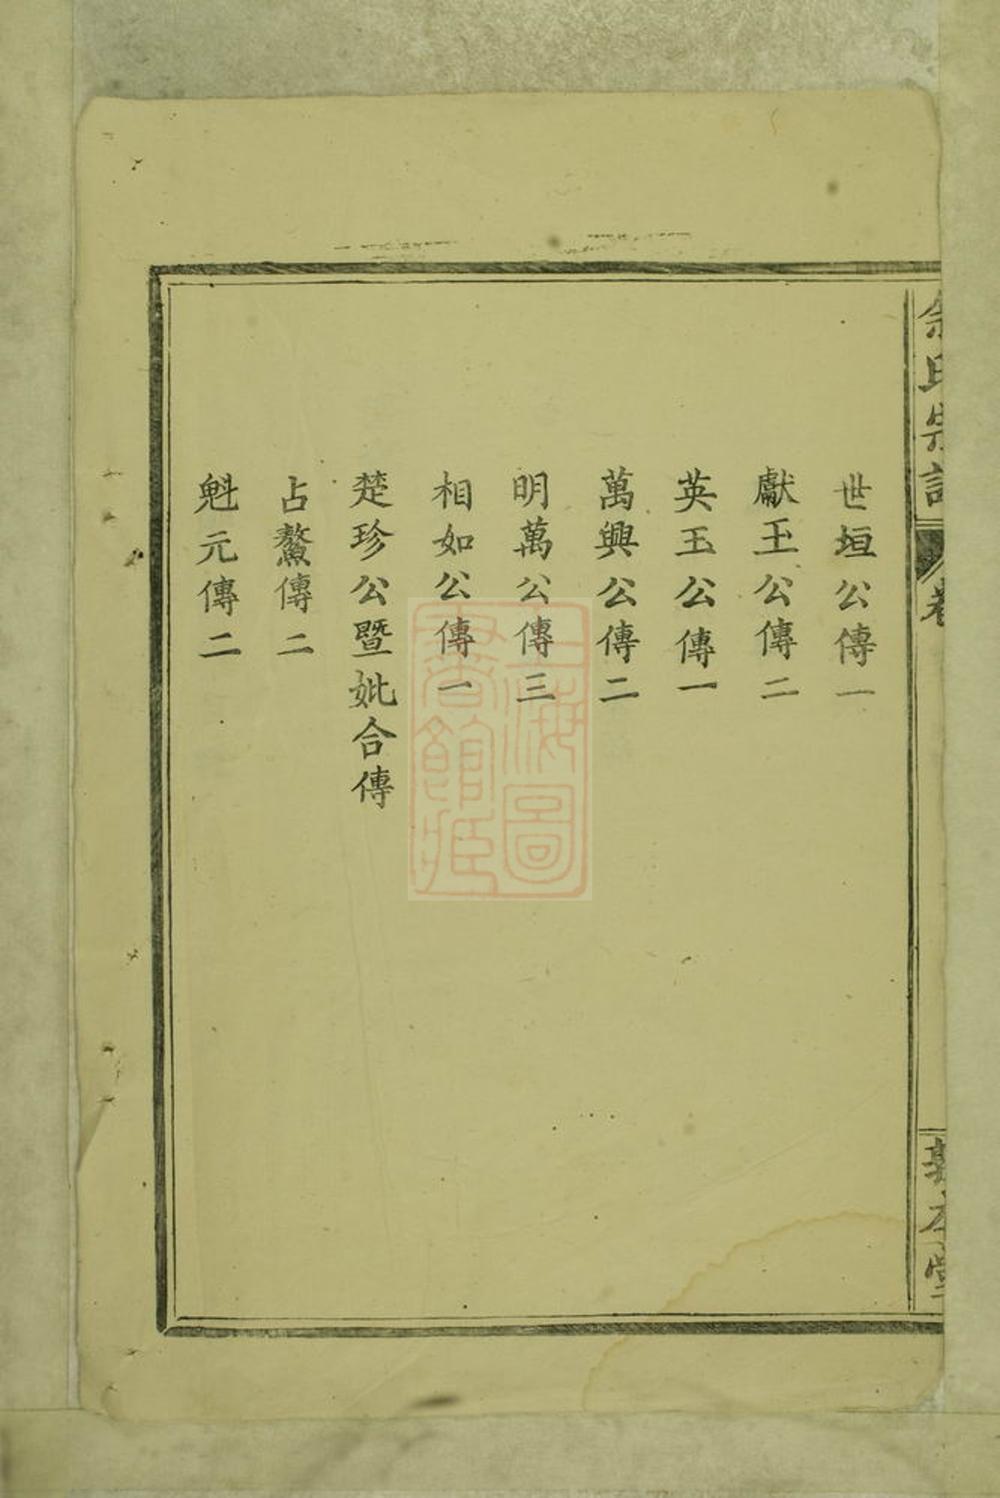 余氏宗譜
卷
敦本堂
世垣公傳一
獻王公傳二
英玉公傳一
萬興公傳二
明萬公傳三
相如公傳一
楚珍公暨妣合傳
占鰲傳二
魁元傳二
上海圖書館藏